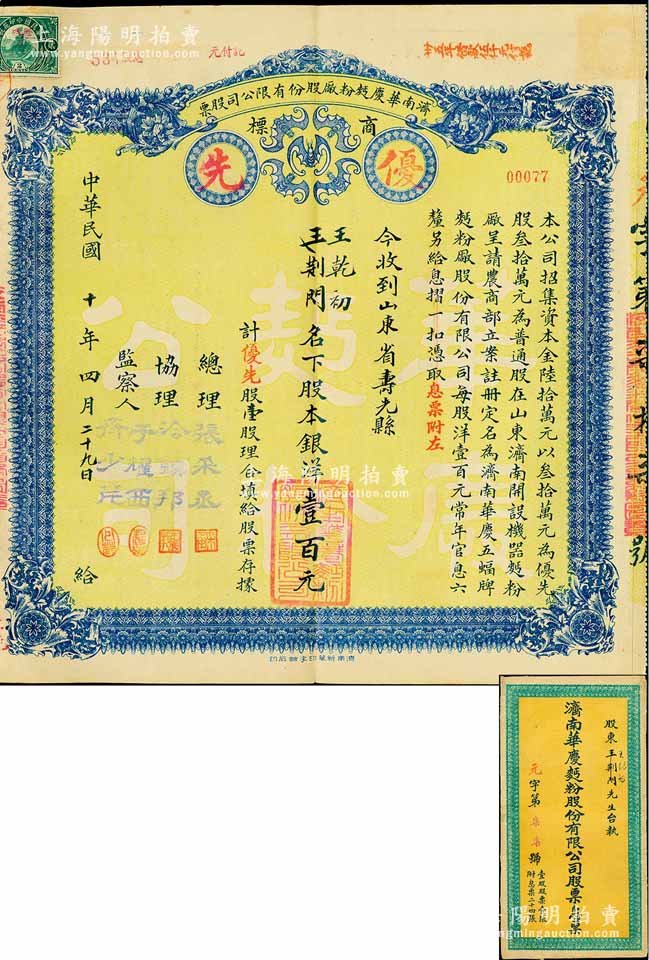 上海陽明拍賣
www.yangmingauction.com
記付元
濟南華慶麪粉廠股份有限公司股票
商標
優先
00077
本公司招集資本金陸拾萬元以叁拾萬元為優先
股叁拾萬元為普通股在山東濟南開設機器麪粉
廠呈請農商部立案註冊定名為濟南華慶五蝠牌
麪粉廠股份有限公司每股洋壹百元常年官息六
釐另給息摺一扣憑取息票附左
今收到山東省壽光縣
王乾初
王荆門名下股本銀洋壹百元
計優先股壹股理合填給股票存據
總理 張采丞
協理 冷鎮邦
監察人 于耀西
齊少芹
中華民國十年四月二十九日給
華慶麪廠公司
上海陽明拍賣
www.yangmingauction.com
股東王荆門先生台執
濟南華慶麪粉股份有限公司股票壹萬
元字第柒柒號
壹股股票壹張
附息票二十四張
上海陽明拍賣
www.yangmingauction.com